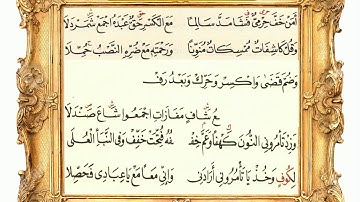 أَمَنْ خَفَّ حِرْمِيٌّ فَشَا مَدَّ سَالِمًا مَعَ الْكَسْرِ حَقٌّ عَبْدَهُ اجْمَعْ شَمَرْدَلَا
وَقُلْ كَاشِفَاتٌ مُمْسِكَاتٌ مُنَوِّنًا وَرَحْمَتِهِ مَعْ ضُرِّهِ النَّصْبُ حُمِّلَا
وَضُمَّ قَضَى وَاكْسِرْ وَحَرِّكْ وَبَعْدُ رَفْـ
ـعُ شَافٍ مَفَازَاتِ اجْمَعُوا شَاعَ صَنْدَلَا
وَزِدْ تَأْمُرُونِي النُّونَ كَهْفًا وَعَمَّ خِفْـ ـفُهُ فُتِّحَتْ خَفِّفْ وَفِي النَّبَأِ الْعُلَى
لِكُوفٍ وَخُذْ يَا تَأْمُرُونِي أَرَادَنِي وَإِنِّي مَعًا مَعْ يَا عِبَادِي فَحَصِّلَا